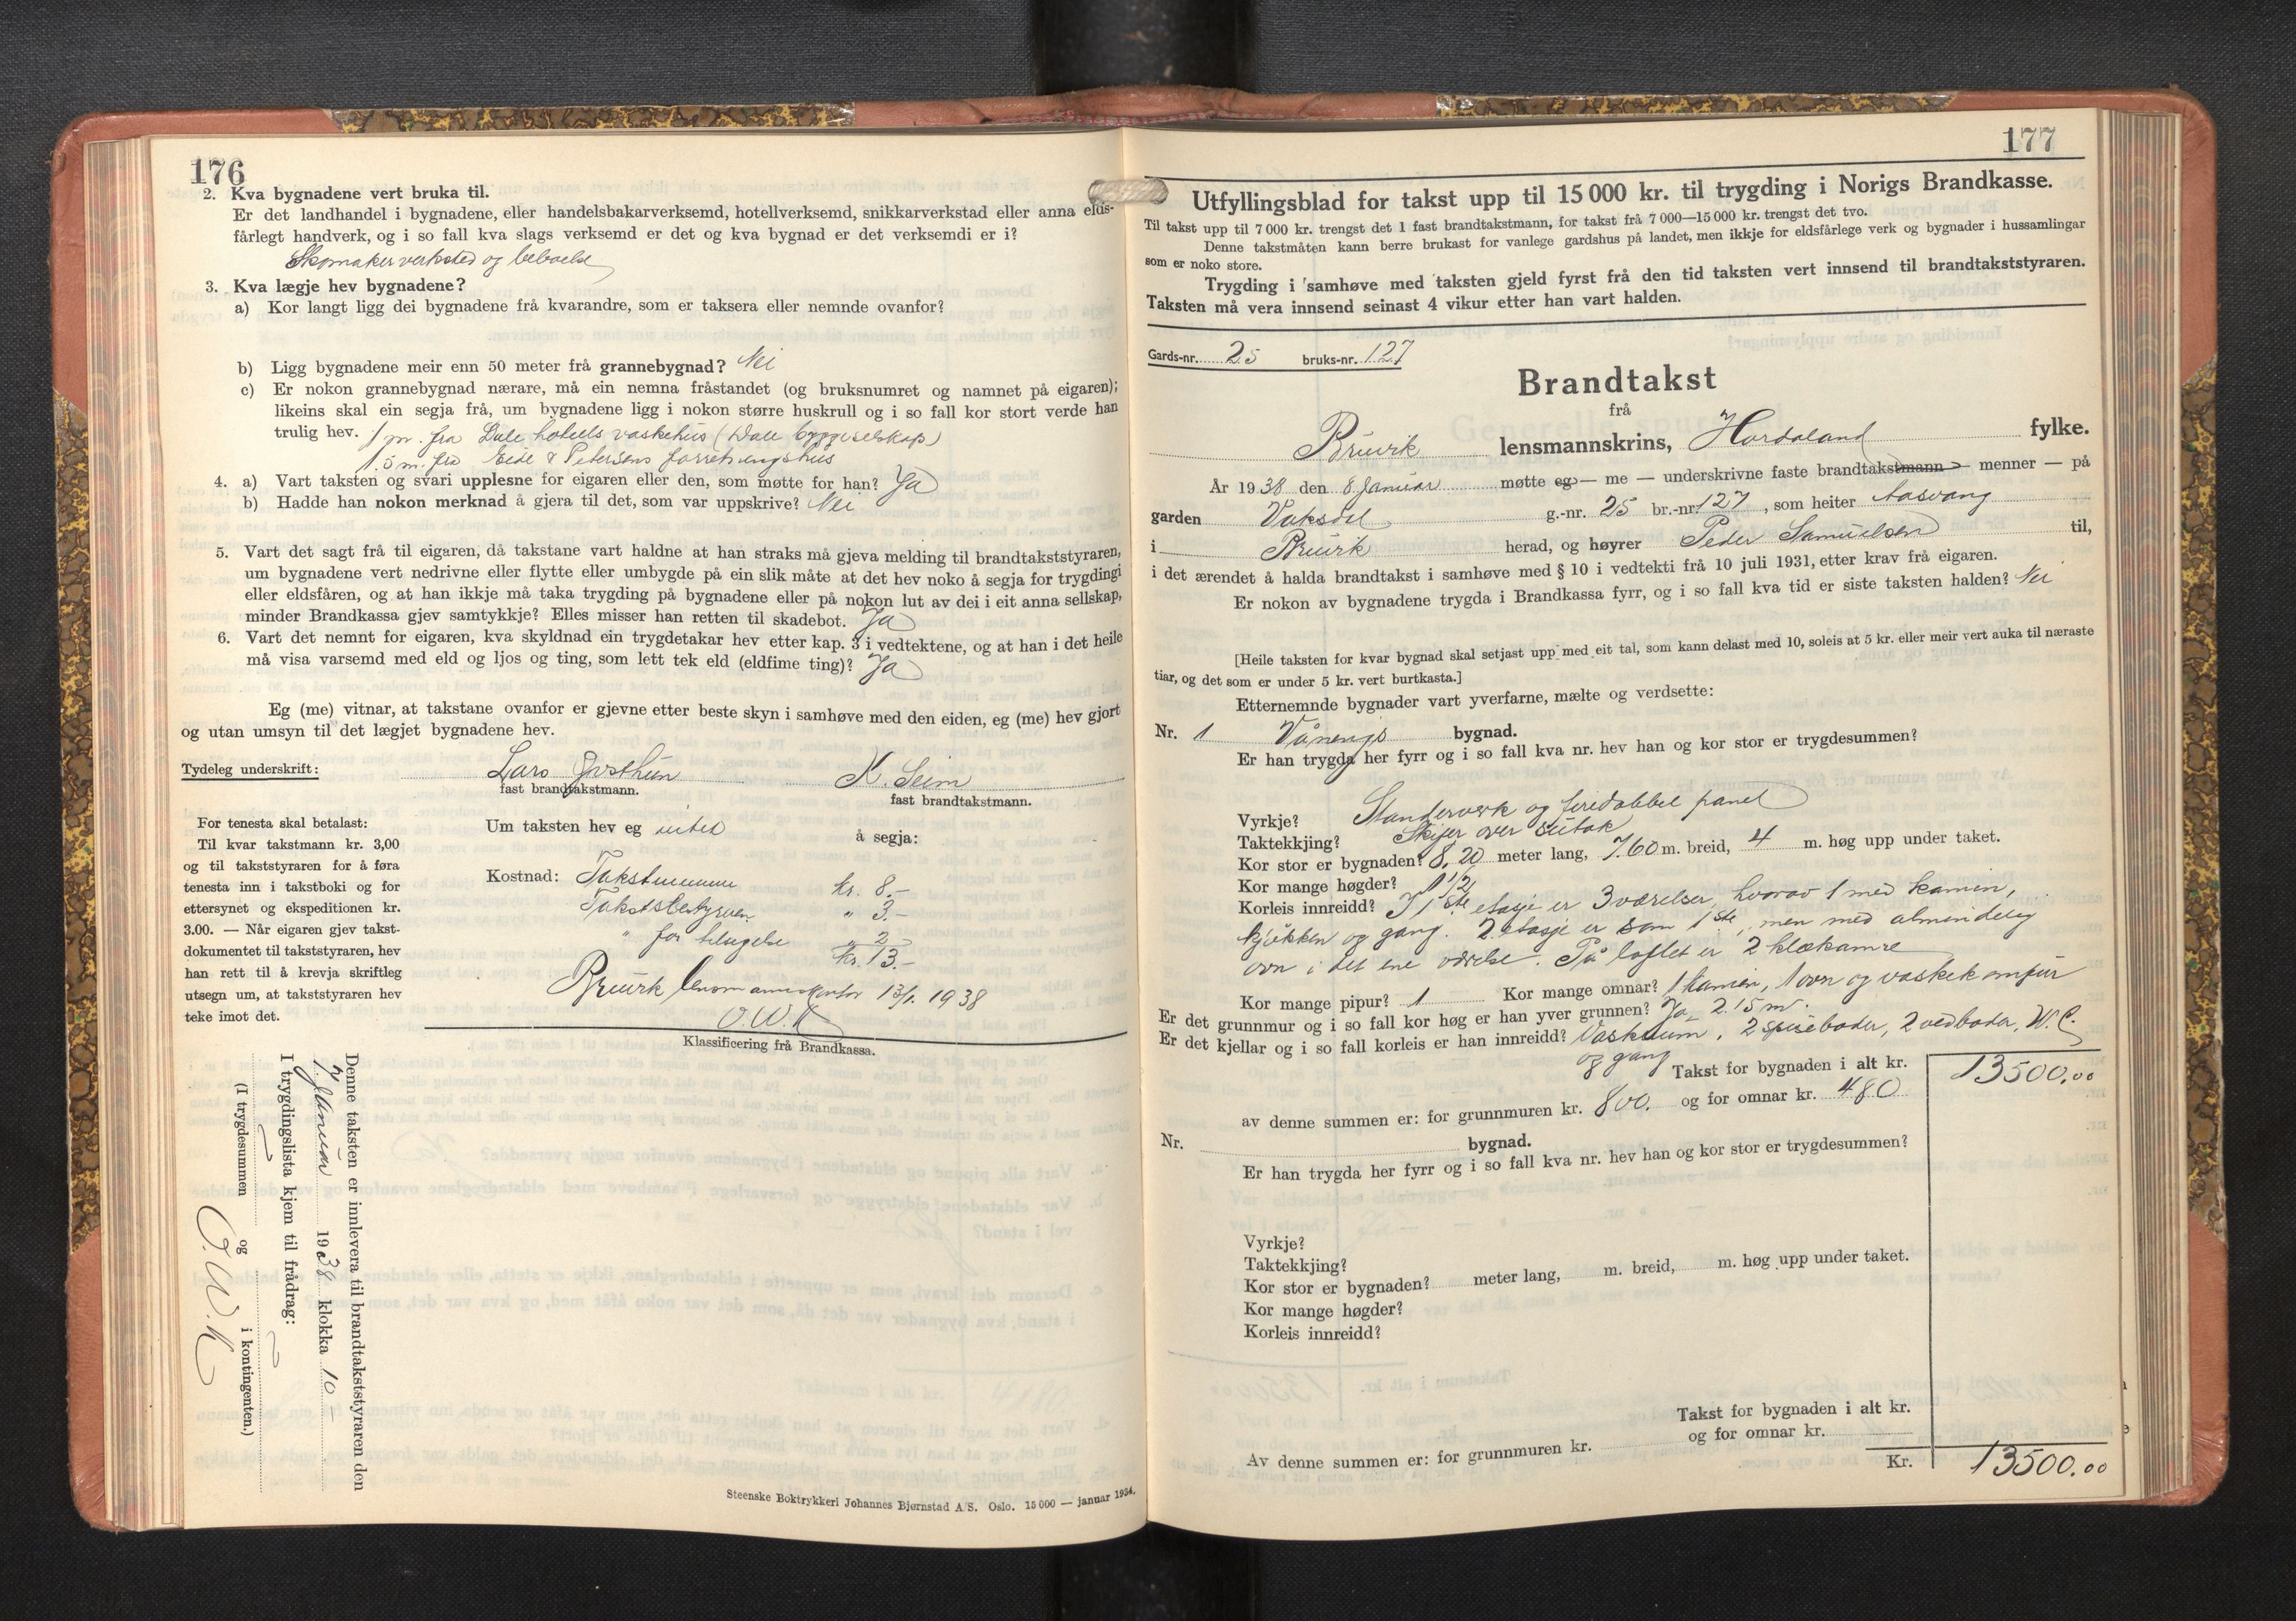 176
2. Kva bygnadene vert bruka til.
Er det landhandel i bygnadene, eller handelsbakarverksemd, hotellverksemd, snikkarverkstad eller anna elds-
fårlegt handverk, og i so fall kva slags verksemd er det og kva bygnad er det verksemdi er i?
Skomakerverksted og beboelse
3. Kva lægje hev bygnadene?
a) Kor langt ligg dei bygnadene frå kvarandre, som er taksera eller nemnde ovanfor?
b) Ligg bygnadene meir enn 50 meter frå grannebygnad? Nei
c) Er nokon grannebygnad nærare, må ein nemna fråstandet (og bruksnumret og namnet på eigaren);
likeins skal ein segja frå, um bygnadene ligg i nokon større huskrull og i so fall kor stort verde han
trulig hev. 1 m. fra Dale hotells vaskehus (Dale byggeselskap)
1.5 m. fra Eide & Petersens forretningshus
4. a) Vart taksten og svari upplesne for eigaren eller den, som møtte for han? Ja
b) Hadde han nokon merknad å gjera til det, som var uppskrive? Nei
5. Vart det sagt frå til eigaren, då takstane vart haldne at han straks må gjeva melding til brandtakststyraren,
um bygnadene vert nedrivne eller flytte eller umbygde på ein slik måte at det hev noko å segja for trygdingi
eller eldsfåren, og at han ikkje må taka trygding på bygnadene eller på nokon lut av dei i eit anna sellskap,
minder Brandkassa gjev samtykkje? Elles misser han retten til skadebot. Ja
6. Vart det nemnt for eigaren, kva skyldnad ein trygdetakar hev etter kap. 3 i vedtektene, og at han i det heile
må visa varsemd med eld og ljos og ting, som lett tek eld (eldfime ting)? Ja
Eg (me) vitnar, at takstane ovanfor er gjevne etter beste skyn i samhøve med den eiden, eg (me) hev gjort
og utan umsyn til det lægjet bygnadene hev.
Tydeleg underskrift: Lars K. Seim
fast brandtakstmann. fast brandtakstmann.
For tenesta skal betalast:
Til kvar takstmann kr. 3,00
og til takststyraren for å føra
tenesta inn i takstboki og for
ettersynet og ekspeditionen kr.
3.00. — Når eigaren gjev takst-
dokumentet til takststyraren, hev
han rett til å krevja skriftleg
utsegn um, at takststyraren hev
teke imot det.
Um taksten hev eg intet å segja:
Kostnad: Takstmennene kr. 8.-
Takstbestyreren " 3.-
" for " 2
Kr. 13.-
Bruvik lensmannskontor 13/1. 1938
O.W.K
Klassificering frå Brandkassa.
Denne taksten er innlevera til brandtakststyraren den
7. Januar 1938 klokka 10 –
I trygdingslista kjem til frådrag:
(I trygdesummen og i kontingenten.)
O.W.K
Steenske Boktrykkeri Johannes Bjørnstad A/S. Oslo. 15 000 — januar 1934.
177
Utfyllingsblad for takst upp til 15 000 kr. til trygding i Norigs Brandkasse.
Til takst upp til 7 000 kr. trengst det 1 fast brandtakstmann, for takst frå 7 000—15 000 kr. trengst det tvo.
Denne takstmåten kann berre brukast for vanlege gardshus på landet, men ikkje for eldsfårlege verk og bygnader i hussamlingar
som er noko store.
Trygding i samhøve med taksten gjeld fyrst frå den tid taksten vert innsend til brandtakststyraren.
Taksten må vera innsend seinast 4 vikur etter han vart halden.
Gards-nr. 25 bruks-nr. 127
Brandtakst
frå
Bruvik lensmannskrins, Hordaland fylke.
År 1938 den 8 Januar møtte eg — me — underskrivne faste brandtakstmann — menner — på
garden Vaksdal g.-nr. 25 br.-nr. 127, som heiter Aasvang
i Bruvik herad, og høyrer Peder Samuelsen til,
i det ærendet å halda brandtakst i samhøve med § 10 i vedtekti frå 10 juli 1931, etter krav frå eigaren.
Er nokon av bygnadene trygda i Brandkassa fyrr, og i so fall kva tid er siste taksten halden? Nei
[Heile taksten for kvar bygnad skal setjast upp med eit tal, som kann delast med 10, soleis at 5 kr. eller meir vert auka til næraste
tiar, og det som er under 5 kr. vert burtkasta.]
Etternemnde bygnader vart yverfarne, mælte og verdsette:
Nr. 1 Vånings bygnad.
Er han trygda her fyrr og i so fall kva nr. hev han og kor stor er trygdesummen?
Vyrkje? Standerverk og firedobbel panel
Taktekkjing? Skifer over sutak
Kor stor er bygnaden? 8,20 meter lang, 7.60 m. breid, 4 m. høg upp under taket.
Kor mange høgder? 1 1/2
Korleis innreidd? I 1ste etasje er 3 værelser, hvorav 1 med kamin,
kjøkken og gang. 2. etasje er som 1ste, men med almindelig
ovn i det ene værelse. På loftet er 2 klækamre
Kor mange pipur? 1 Kor mange omnar? 1 kamin, 1 ovn og vaskekomfür
Er det grunnmur og i so fall kor høg er han yver grunnen? Ja 2.15 m.
Er det kjellar og i so fall korleis er han innreidd? Vaskerum, 2 spiseboder, 2 vedboder, W.C.
og gang
Takst for bygnaden i alt kr. 13500.00
av denne summen er: for grunnmuren kr. 800. og for omnar kr. 480
Nr. bygnad.
Er han trygda her fyrr og i so fall kva nr. hev han og kor stor er trygdesummen?
Vyrkje?
Taktekkjing?
Kor stor er bygnaden? meter lang, m. breid, m. høg upp under taket.
Kor mange høgder?
Korleis innreidd?
Takst for bygnaden i alt kr.
Av denne summen er: for grunnmuren kr. og for omnar kr.
Kr. 13500.00